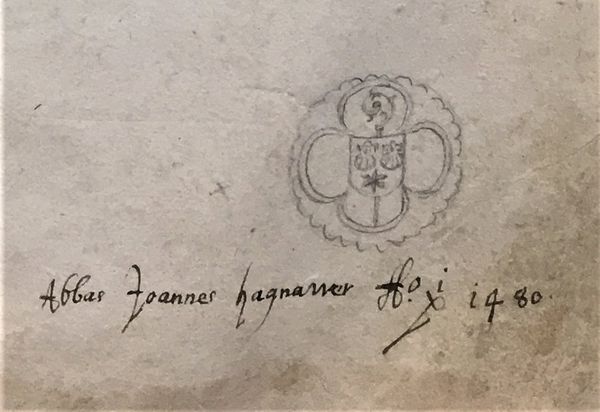 Abbas Joannes hagnauer 1480.